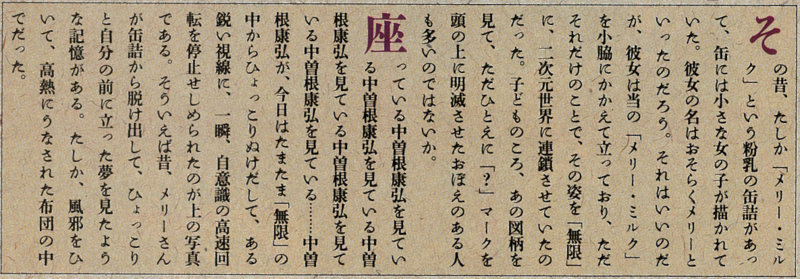 その昔、たしか「メリー・ミル
ク」という粉乳の缶詰があっ
て、缶には小さな女の子が描かれて
いた。彼女の名はおそらくメリーと
いったのだろう。それはいいのだ
が、彼女は当の「メリー・ミルク」
を小脇にかかえて立っており、ただ
それだけのことで、その姿を「無限」
に、二次元世界に連鎖させていたの
だった。子どものころ、あの図柄を
見て、ただひとえに「?」マークを
頭の上に明滅させたおぼえのある人
も多いのではないか。
座っている中曽根康弘を見てい
る中曽根康弘を見ている中曽
根康弘を見ている中曽根康弘を見て
いる中曽根康弘を見ている………中曽
根康弘が、今日はたまたま「無限」の
中からひょっこりぬけだして、ある
鋭い視線に、一瞬、自意識の高速回
転を停止せしめられたのが上の写真
である。そういえば昔、メリーさん
が缶詰から脱け出して、ひょっこり
と自分の前に立った夢を見たよう
な記憶がある。たしか、風邪をひ
いて、高熱にうなされた布団の中
でだった。